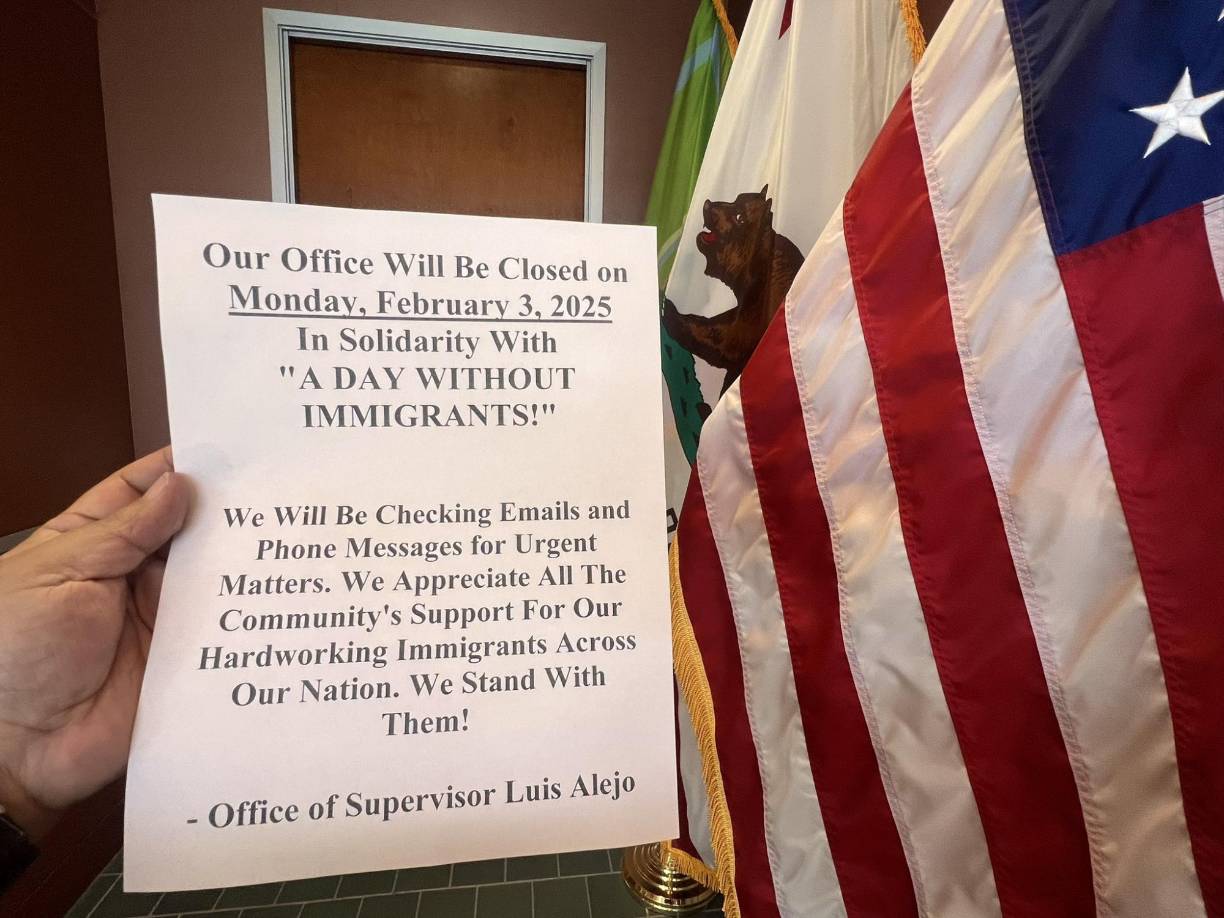 Our Office Will Be Closed on
Monday, February 3, 2025
In Solidarity With
"A DAY WITHOUT
IMMIGRANTS!"
We Will Be Checking Emails and
Phone Messages for Urgent
Matters. We Appreciate All The
Community's Support For Our
Hardworking Immigrants Across
Our Nation. We Stand With
Them!
- Office of Supervisor Luis Alejo